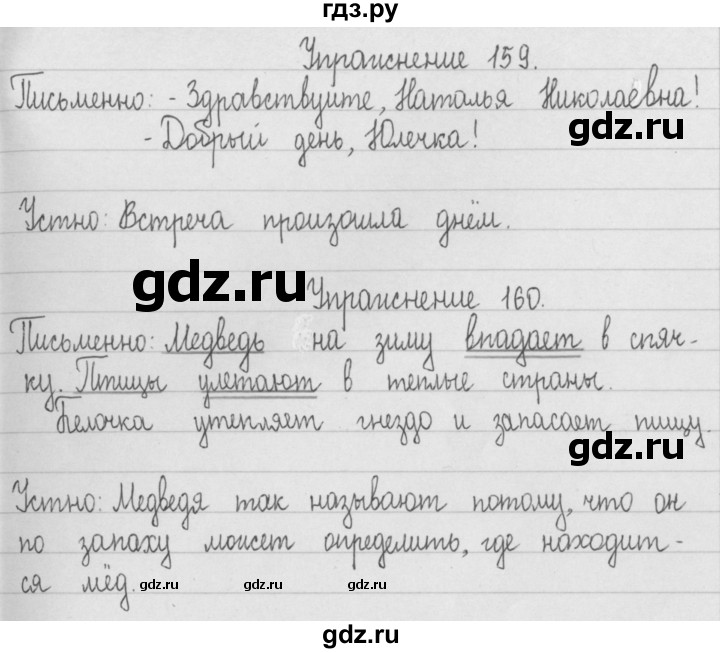 гдз.ру
Упражнение 159.
Письменно: - Здравствуйте, Наталья Николаевна!
- Добрый день, Юлечка!
gdz.ru
Устно: Встреча произошла днём.
gdz.ru
Упражнение 160.
Письменно: Медведь на зиму впадает в спяч-
ку. Птицы улетают в теплые страны.
Белочка утепляет гнездо и запасает пищу.
gdz.ru
Устно: Медведя так называют потому, что он
по запаху может определить, где находит-
ся мёд.
gdz.ru gdz.ru gdz.ru
gdz.ru